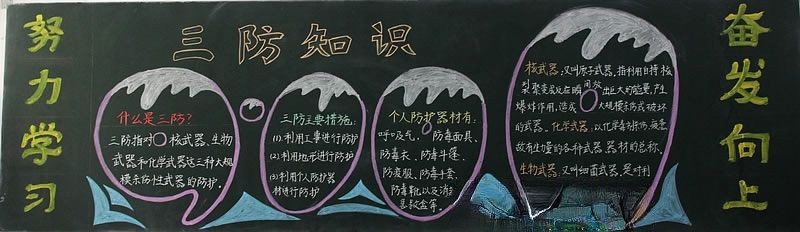 努力学习
三防知识
什么是三防?
三防指对核武器、生物
武器和化学武器这三种大规
模杀伤性武器的防护。
三防主要措施:
(1).利用工事进行防护
(2).利用地形进行防护
(3).利用个人防护器
材进行防护
个人防护器材有:
呼吸气, 防毒面具、
防毒衣、防毒斗篷、
防疫服、防毒手套、
防毒靴以及消
急救盒等。
核武器:又叫原子武器,指利用自持核
裂聚变反应在瞬间放出巨大的能量,产生
爆炸作用,造成大规模杀伤或破坏
的武器。化学武器:以化学毒剂杀伤
有生力量的各种武器器材的总称。
生物武器:又叫细菌武器,是对利
奋发向上